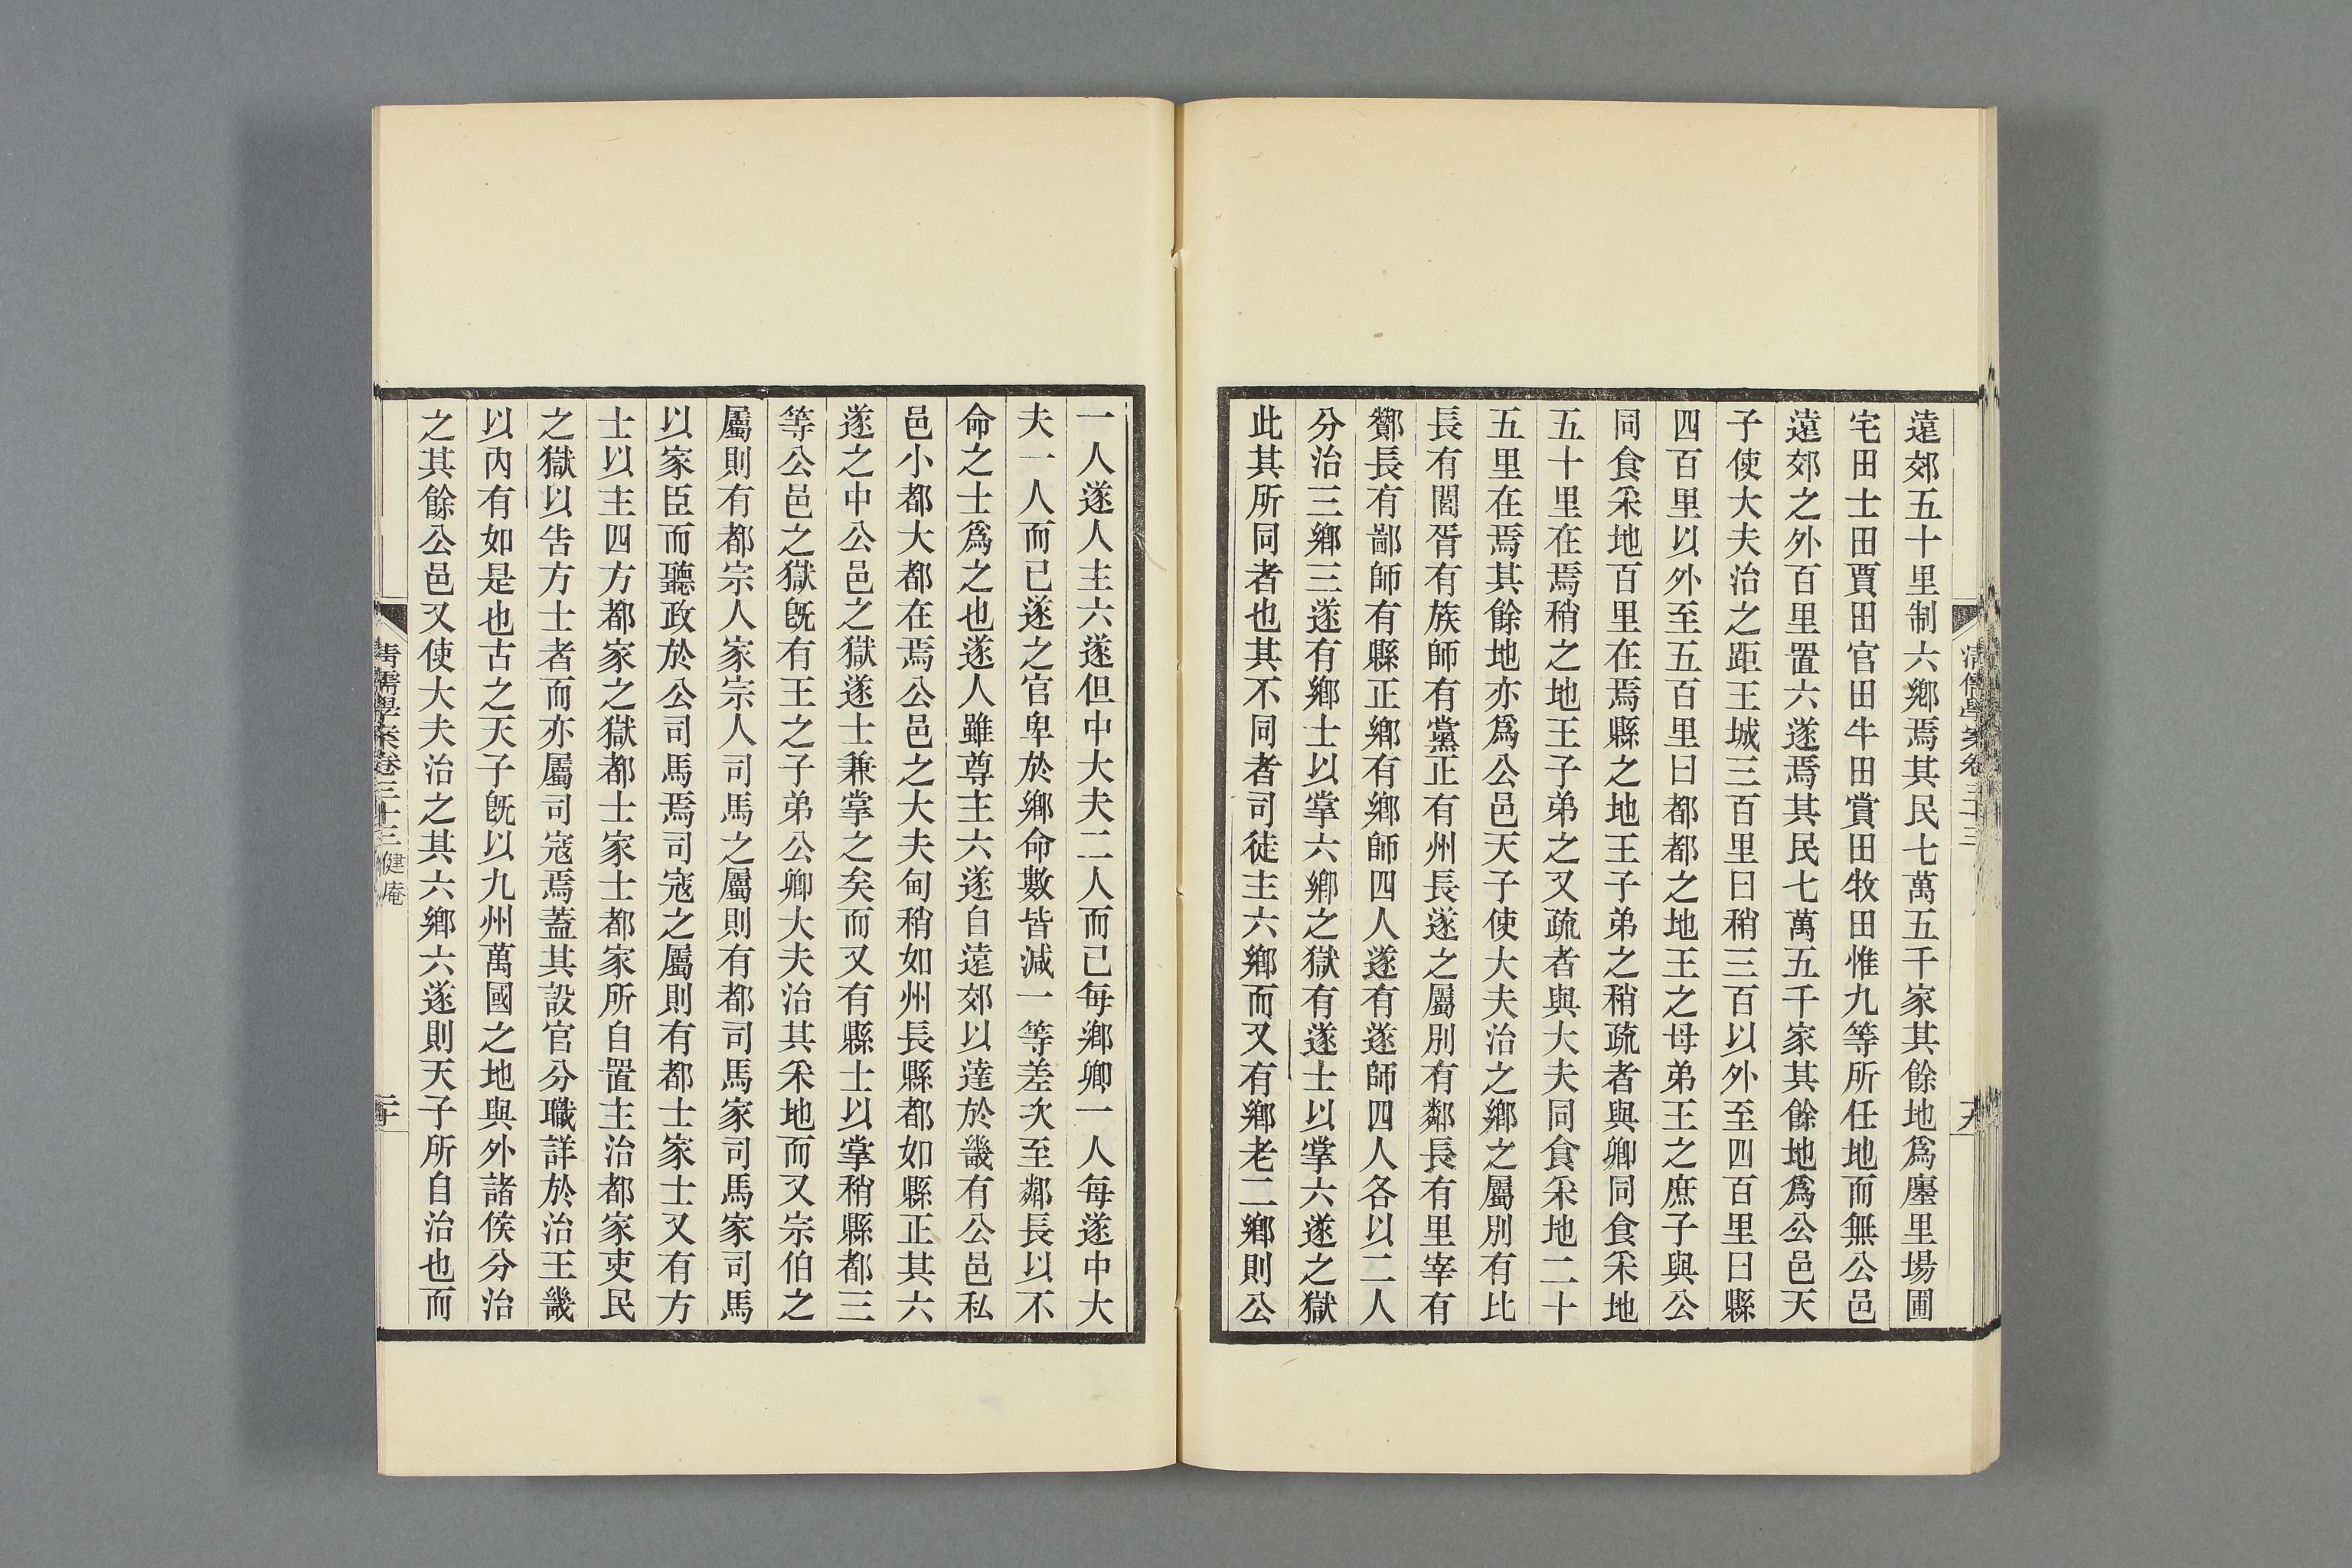 遠郊五十里制六鄉焉其民七萬五千家其餘地爲廛里場圃
宅田士田賈田官田牛田賞田牧田惟九等所任地而無公邑
遠郊之外百里置六遂焉其民七萬五千家其餘地爲公邑天
子使大夫治之距王城三百里曰稍三百以外至四百里曰縣
四百里以外至五百里曰都都之地王之母弟王之庶子與公
同食采地百里在焉縣之地王子弟之稍疏者與卿同食采地
五十里在焉稍之地王子弟之又疏者與大夫同食采地二十
五里在焉其餘地亦爲公邑天子使大夫治之鄉之屬別有比
長有閭胥有族師有黨正有州長遂之屬別有鄰長有里宰有
酇長有鄙師有縣正鄉有鄉師四人遂有遂師四人各以二人
分治三鄉三遂有鄉士以掌六鄉之獄有遂士以掌六遂之獄
此其所同者也其不同者司徒主六鄉而又有鄉老二鄉則公
清儒學案卷三十三
九
一人遂人主六遂但中大夫二人而已每鄉卿一人每遂中大
夫一人而已遂之官卑於鄉命數皆減一等差次至鄰長以不
命之士爲之也遂人雖尊主六遂自遠郊以達於畿有公邑私
邑小都大都在焉公邑之大夫甸稍如州長縣都如縣正其六
遂之中公邑之獄遂士兼掌之矣而又有縣士以掌稍縣都三
等公邑之獄旣有王之子弟公卿大夫治其采地而又宗伯之
屬則有都宗人家宗人司馬之屬則有都司馬家司馬家司馬
以家臣而聽政於公司馬焉司寇之屬則有都士家士又有方
士以主四方都家之獄都士家士都家所自置主治都家吏民
之獄以告方士者而亦屬司寇焉蓋其設官分職詳於治王畿
以內有如是也古之天子旣以九州萬國之地與外諸侯分治
之其餘公邑又使大夫治之其六鄉六遂則天子所自治也而
清儒學案卷三十三 健庵